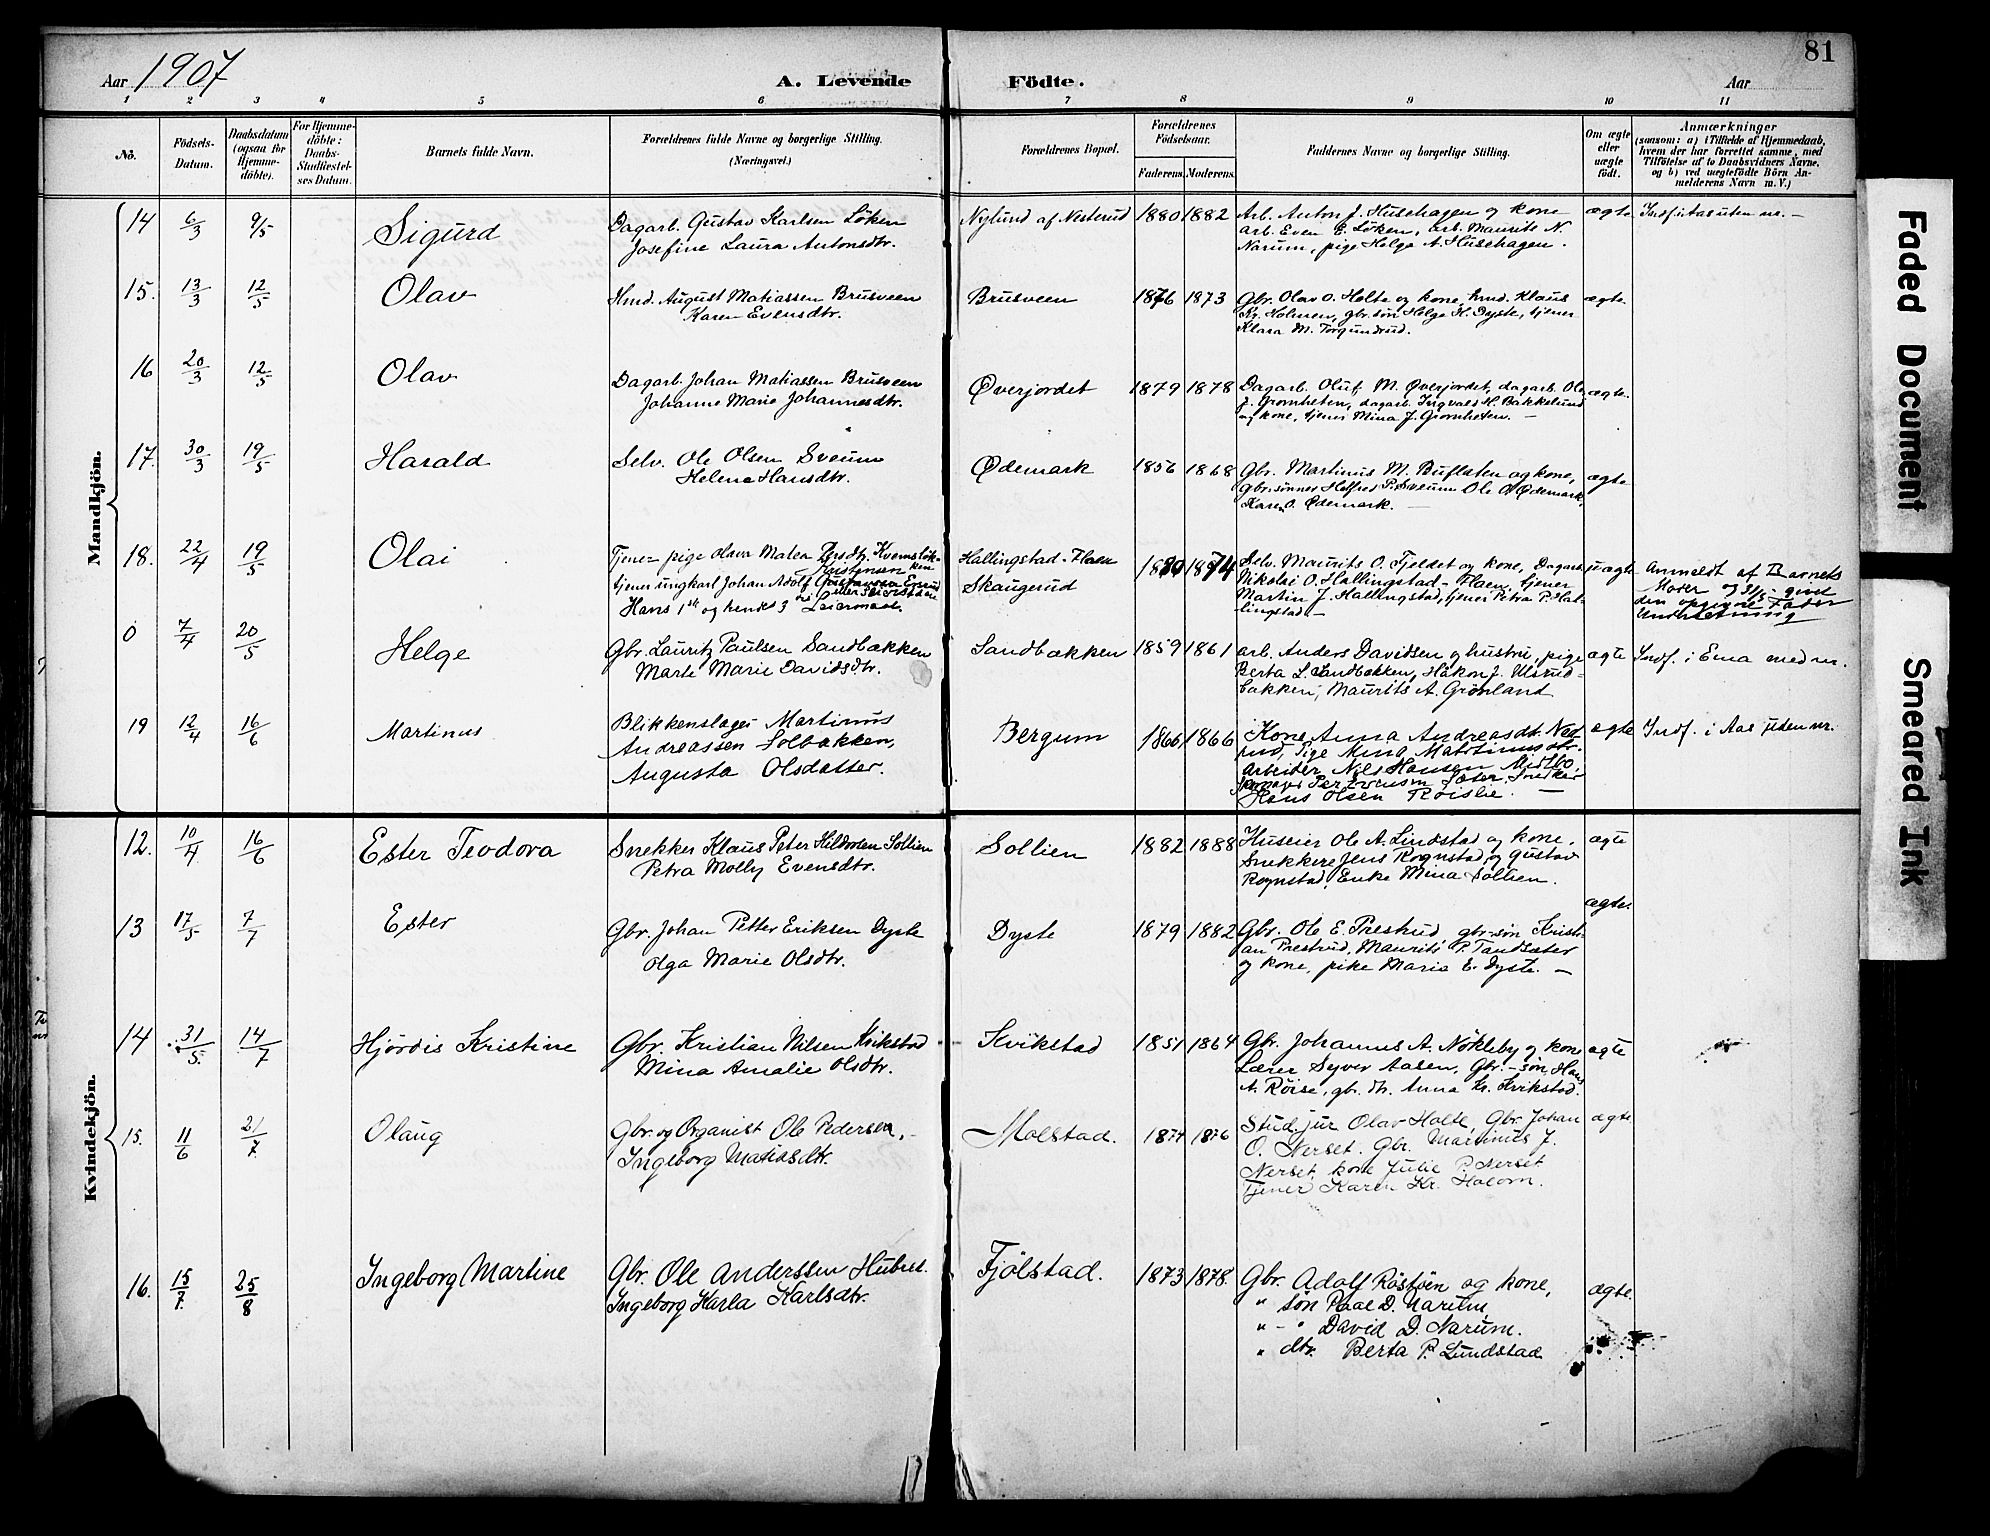 81
Aar 1907
A. Levende
Födte.
Aar
1 2 3 4 5 6 7 8 9 10 11
Nò.
Födsels-
Datum.
Daabsdatum
(ogsaa for
Hjemme-
döbte).
For Hjemme-
döbte:
Daabs-
Stadfæstel-
ses Datum.
Barnets fulde Navn.
Forældrenes fulde Navne og borgerlige Stilling.
(Næringsvei.)
Forældrenes Bopæl.
Forældrenes
Födselsaar.
Faderens. Moderens.
Faddernes Navne og borgerlige Stilling.
Om ægte
eller
uægte
födt.
Anmærkninger
(saasom: a) i Tilfælde af Hjemmedaab,
hvem der har forrettet samme, med
Tilföielse af to Daabsvidners Navne,
og b) ved uægtefödte Börn An-
melderens Navn m. V.)
Mandkjön.
14 6/3 9/5 Sigurd
Dagarb. Gustav Karlsen Löken
Josefine Laura Antonsdtr.
Nylund af Nesterud 1880 1882
Arb. Anton J. Husehagen og kone
arb. Even E. Löken, arb. Maurits N.
Narum, pige Helga A. Husehagen.
ægte
15. 13/3 12/5 Olav
Hmd. August Matiassen Brusveen
Karen Evensdtr.
Brusveen 1876 1873
Gbr. Olav O. Holte og kone, hmd. Klaus
Kr. Holmen, gbr. søn Helge H. Dyste, tjener
Klara M. Torgundrud.
ægte
16 20/3 12/5 Olav
Dagarb. Johan Matiassen Brusveen
Johanne Marie Johannesdtr.
Øverjordet 1879 1878
Dagarb. Oluf M. Øverjordet, dagarb. Ole
J. Gromheten, dagarb. Ingvald H. Bakkelund
og kone, tjener Mina J. Gromheten. —
ægte.
17. 30/3 19/5 Harald
Selv. Ole Olsen Sveum
Helene Hansdtr.
Ødemark 1856 1868
Gbr. Martinus M. Buflaten og kone,
gbr. sønner Helfred P. Sveum Ole O. Ødemark,
Karen O. Ødemark. —
ægte
18. 22/4 19/5 Olai
Tjene- pige Olava Matea
tjener ungkarl Johan Adolf
Hans 1ste og hendes 3 Leiermaal.
Hallingstad-Flaen
Skaugerud
Selv. Maurits O. Fjeldet og kone, Dagarb.
Nikolai O. Hallingstad-Flaen, tjener
Martin J. Hallingstad, tjener Petra P. Hal-
lingstad —
uægte
Anmeldt af Barnets
Moder og 31/5 givet
den opgivne Fader
Underretning
0 7/4 20/5 Helge
Gbr. Lauritz Paulsen Sandbakken
Marte Marie Davidsdtr.
Sandbakken 1859 1861
arb. Anders Davidsen og hustru, pige
Berta L. Sandbakken, Håkon J. Ulsrud-
bakken, Maurits A. Grønland
ægte
Indf. i Eina med nr.
19 12/4 16/6 Martinus
Blikkenslager Martinus
Andreassen Solbakken,
Augusta Olsdatter.
Bergum 1866 1866
Kone Anna Andreasdt. Ned
rud, Pige Mina Martinusdtr.
Arbeider Nils Hansen Midtbo,
Hans Olsen Røislie. —
ægte
Indf. i Aas uden nr.
Kvindekjön.
12. 10/4 16/6 Ester Teodora
Snekker Klaus Peter Hildroten Sollien
Petra Molly Evensdtr.
Sollien 1882 1888
Huseier Ole A. Lindstad og kone,
Snekkere Jens Rognstad og Gustav
Rognstad, Enke Mina Sollien.
ægte
13 17/5 7/7 Ester
Gbr. Johan Petter Eriksen Dyste
Olga Marie Olsdtr.
Dyste 1879 1882
Gbr. Ole E. Prestrud, gbr-søn Kristi-
an Prestrud, Maurits P. Tandsæter
og kone, pike Maria E. Dyste. —
ægte.
14 31/5. 14/7 Hjördis Kristine
Gbr. Kristian Nilsen Kvikstad
Mina Amalie Olsdtr.
Kvikstad 1851 1864
Gbr. Johannes A. Nökleby og kone
Lærer Syver Aasen, Gbr.-søn Hans
A. Röise, gb. dtr. Anna Kr. Kvikstad.
ægte
15. 11/6 21/7 Olaug
Gbr. og Organist Ole Pedersen,
Ingeborg Matiasdtr.
Molstad. 1874 1876
Stud. jur Olav Holte, Gbr. Johan
O. Nerset. Gbr. Martinus J.
Nerset, kone Julie P. Nerset
Tjener Karen Kr.
ægte
16. 15/7. 25/8 Ingeborg Martine
Gbr. Ole Anderssen
Ingeborg Karla Karlsdtr.
Fjölstad. 1873 1878.
Gbr. Adolf Röstöen og kone,
" søn Paal D. Narum
" - " David D. Narum.
" dtr. Berta P. Lundstad
ægte.
Faded Document
Smeared Ink